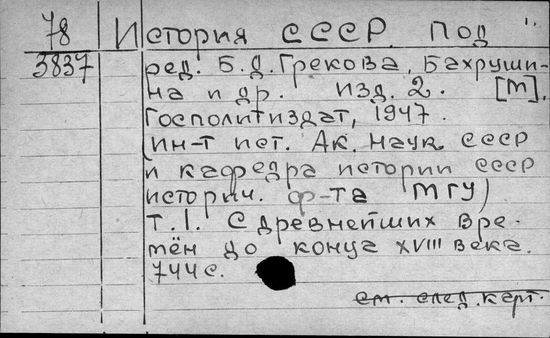 78 История СССР. Под
3837 ред. Б.Д.Грекова, Бахруши-
на и др. изд. 2. [М],
Госполитиздат, 1947.
(Ин-т ист. Ак. Наук СССР
и кафедра истории СССР
историч. ф-та МГУ)
Т.1. С древнейших вре-
мён до конца XVIII века.
744 с.
см. след. карт.